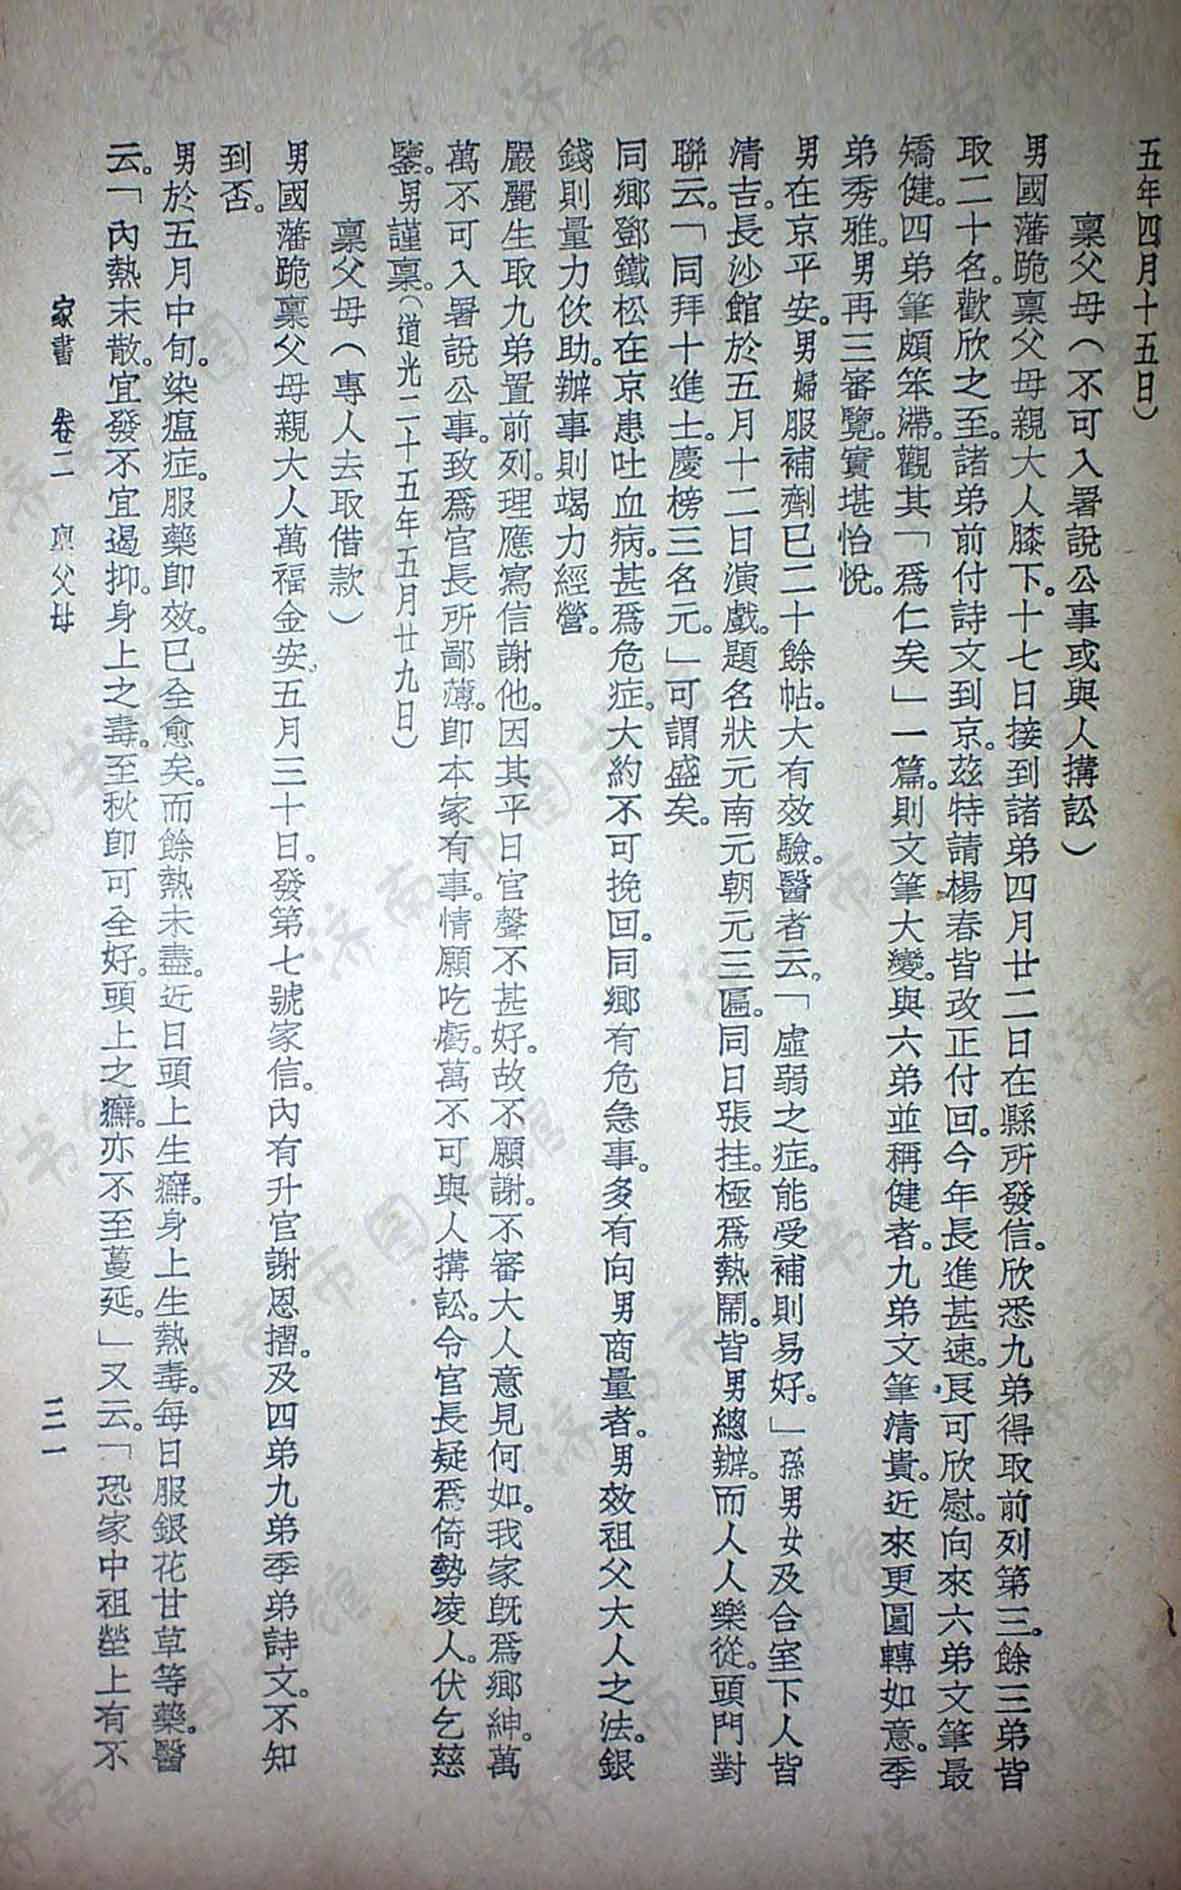 五年四月十五日）
稟父母（不可入署說公事或與人搆訟）
男國藩跪稟父母親大人膝下。十七日接到諸弟四月廿二日在縣所發信。欣悉九弟得取前列第三。餘三弟皆
取二十名。歡欣之至。諸弟前付詩文到京。茲特請楊春皆改正付回。今年長進甚速。良可欣慰。向來六弟文筆最
矯健。四弟筆頗笨滯。觀其「爲仁矣」一篇。則文筆大變。與六弟並稱健者。九弟文筆清貴。近來更圓轉如意。季
弟秀雅。男再三審覽。實堪怡悅。
男在京平安。男婦服補劑已二十餘帖。大有效驗。醫者云。「虛弱之症。能受補則易好。」孫男女及合室下人皆
清吉。長沙館於五月十二日演戲。題名狀元南元朝元三匾。同日張挂。極爲熱鬧。皆男總辦。而人人樂從。頭門對
聯云。「同拜十進士。慶榜三名元。」可謂盛矣。
同鄉鄧鐵松在京患吐血病。甚爲危症。大約不可挽回。同鄉有危急事。多有向男商量者。男效祖父大人之法。銀
錢則量力佽助。辦事則竭力經營。
嚴麗生取九弟置前列。理應寫信謝他。因其平日官聲不甚好。故不願謝。不審大人意見何如。我家旣爲鄉紳。萬
萬不可入署說公事。致爲官長所鄙薄。卽本家有事。情願吃虧。萬不可與人搆訟。令官長疑爲倚勢凌人。伏乞慈
鑒。男謹稟。（道光二十五年五月廿九日）
稟父母（專人去取借款）
男國藩跪稟父母親大人萬福金安。五月三十日。發第七號家信。內有升官謝恩摺。及四弟九弟季弟詩文。不知
到否。
男於五月中旬。染瘟症。服藥卽效。已全愈矣。而餘熱未盡。近日頭上生癬。身上生熱毒。每日服銀花甘草等藥。醫
云。「內熱未散。宜發不宜遏抑。身上之毒。至秋卽可全好。頭上之癬。亦不至蔓延。」又云。「恐家中祖塋上有不
家書　卷二　稟父母　三一